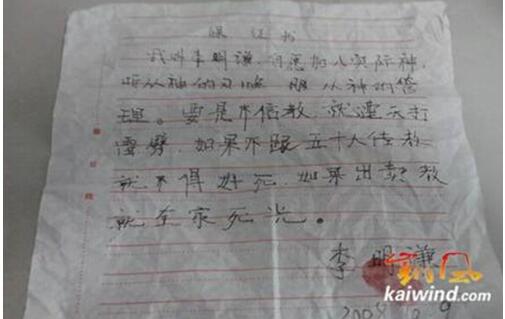 保证书
我叫李明谦，自愿加入实际神，
听从神的
服从神的管
理。要是不信教，就遭天打
雷劈，如果不跟五十人传教
就不得好死，如果出卖教
就全家死光。
李明谦
凯风
kaiwind.com